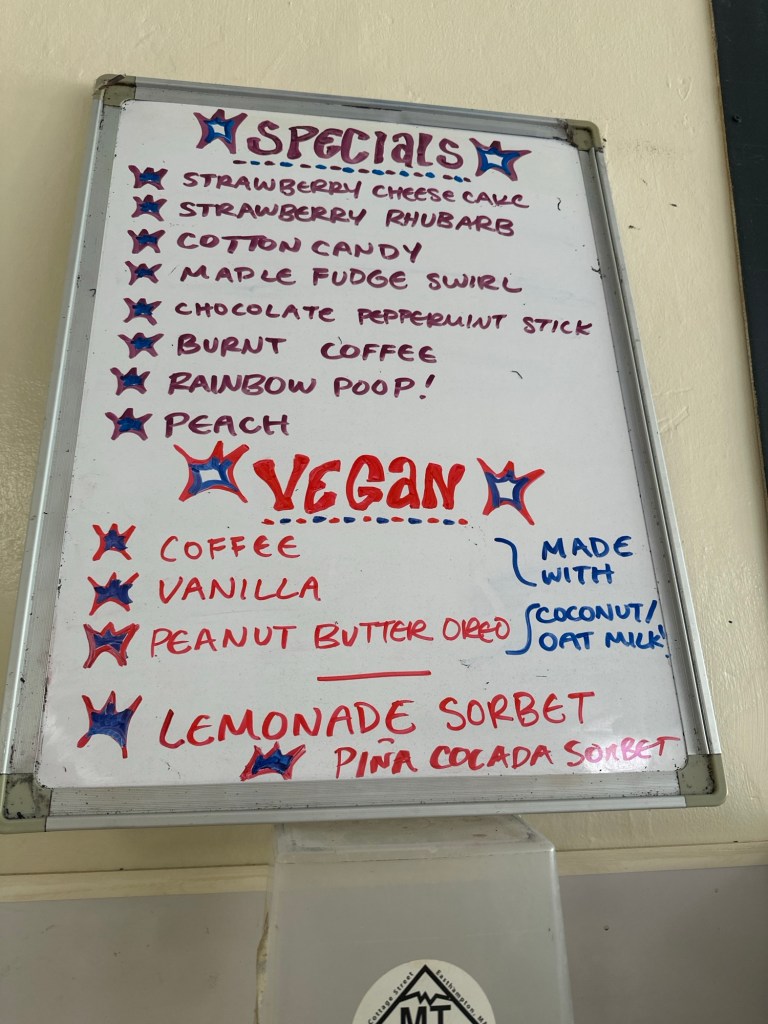 SPECIALS
STRAWBERRY CHEESE CAKE
STRAWBERRY RHUBARB
COTTON CANDY
MAPLE FUDGE SWIRL
CHOCOLATE PEPPERMINT STICK
BURNT COFFEE
RAINBOW POOP!
PEACH
VEGAN
COFFEE
VANILLA
PEANUT BUTTER OREO
MADE
WITH
COCONUT/
OAT MILK!
LEMONADE SORBET
PIÑA COLADA SORBET
Cottage Street
Easthampton, M
MT